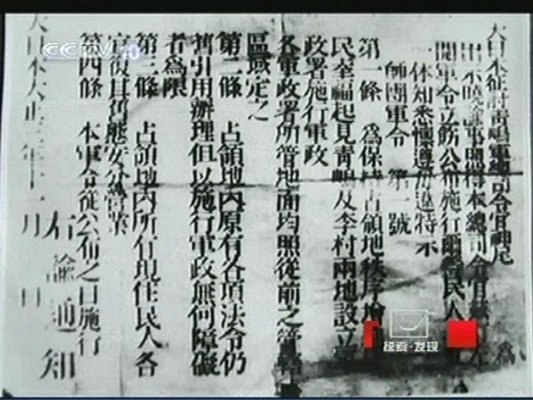 大日本征討靑嶋軍總司令官神尾
出示曉諭事照得本總司令官 為
開軍令立飭公布施行爾 民人
一体知悉懍遵毋違特示
師團軍令 第一號
第一條 為保持占領地秩序增
民幸福起見靑嶋及李村兩地設立軍
政署施行軍政
各軍政署所管地面均照從前之管轄
區域定之
第二條 占領地內原有各項法令仍
舊引用辦理但以施行軍政無何障礙
者為限
第三條 占領地內所有現住民人各
宜復其舊態安分營業
第四條 本軍令從公布之日施行
右諭通知
大日本大正三年十一月 日
CCTV 10
探索·发现